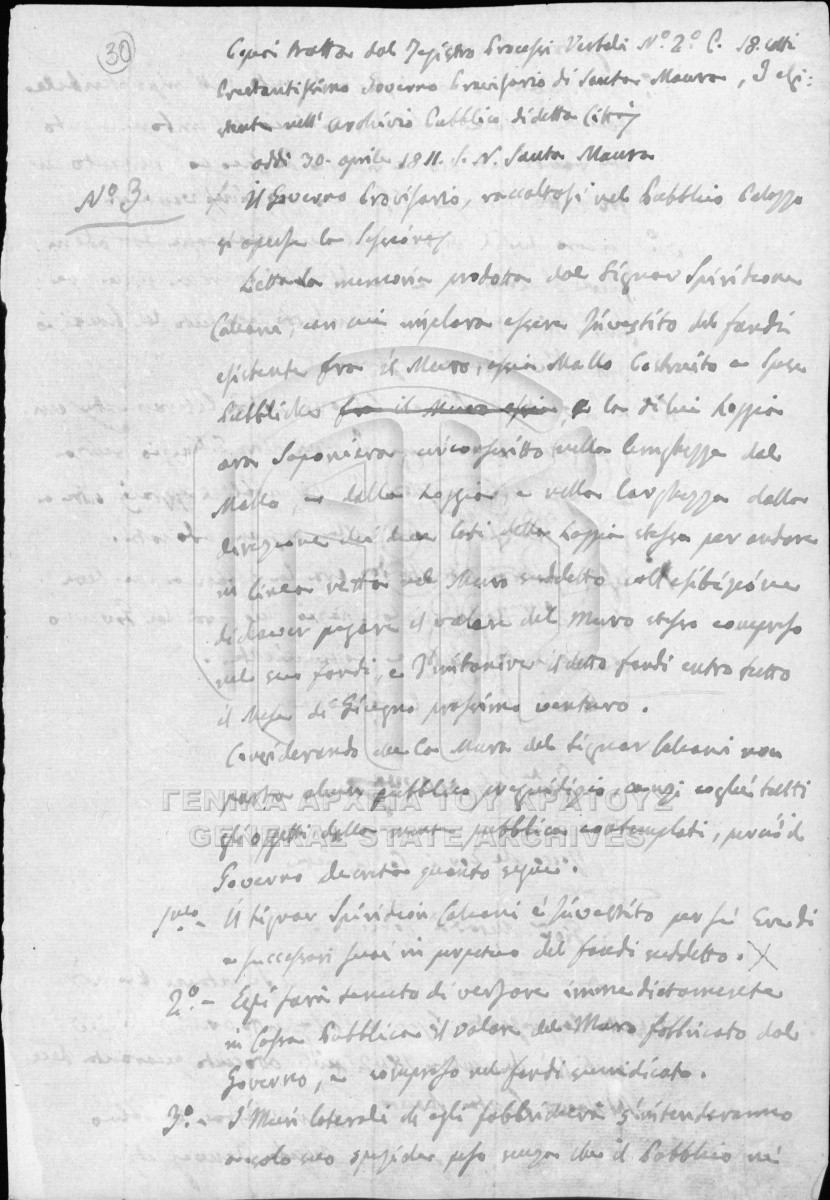 30
Copia tratta dal Registro Processi Verbali Nº 2º C. 18. sotti
Prestantissimo Governo Provisorio di Santa Maura, Esi:
stente nell' Archivio Pubblico di detta Città
addi 30. aprile 1811. S. N. Santa Maura
Nº 3
Il Governo Provisorio, raccoltosi nel Pubblico Palazzo
si aperse la Sessione
Letta la memoria prodotta dal Signor Spiridione
Calcani, con cui implora essere Investito del fondi
esistente fra il Muro, ossia Mollo Costruito a spese
Pubbliche fra il Muro ossia, e la di lui Loggia
ora Saponiera circonscritto nella lunghezza dal
Mollo, e dalla Loggia, e nella larghezza dalla
direzione dei due lati della Loggia stessa per andare
in linea retta nel Muro suddetto coll' esibizione
di dover pagare il valore del Muro stesso compreso
nel suo fondi, e il detto fondi entro tutto
il Mese di Giugno prossimo venturo.
Considerando che la Mura del Signor Calcani non
porta alcun pubblico pregiudizio, anzi coglie tutti
gli oggetti dalla mente pubblica contemplati, perciò il
Governo decreta quanto segue.
Imo. Il Signor Spiridion Calcani è Investito per sè Eredi
e successori suoi in perpetuo del fondi suddetto. X
2º. Egli sarà tenuto di versare immediatamente
in Cassa Pubblica il valore del Muro fabbricato dal
Governo, e compreso nel fondi summidicato.
3º. I Muri laterali ch' egli fabbricherà s'intenderanno
a solo suo uso senza che il Pubblico nè
ΓΕΝΙΚΑ ΑΡΧΕΙΑ ΤΟΥ ΚΡΑΤΟΥΣ
GENERAL STATE ARCHIVES